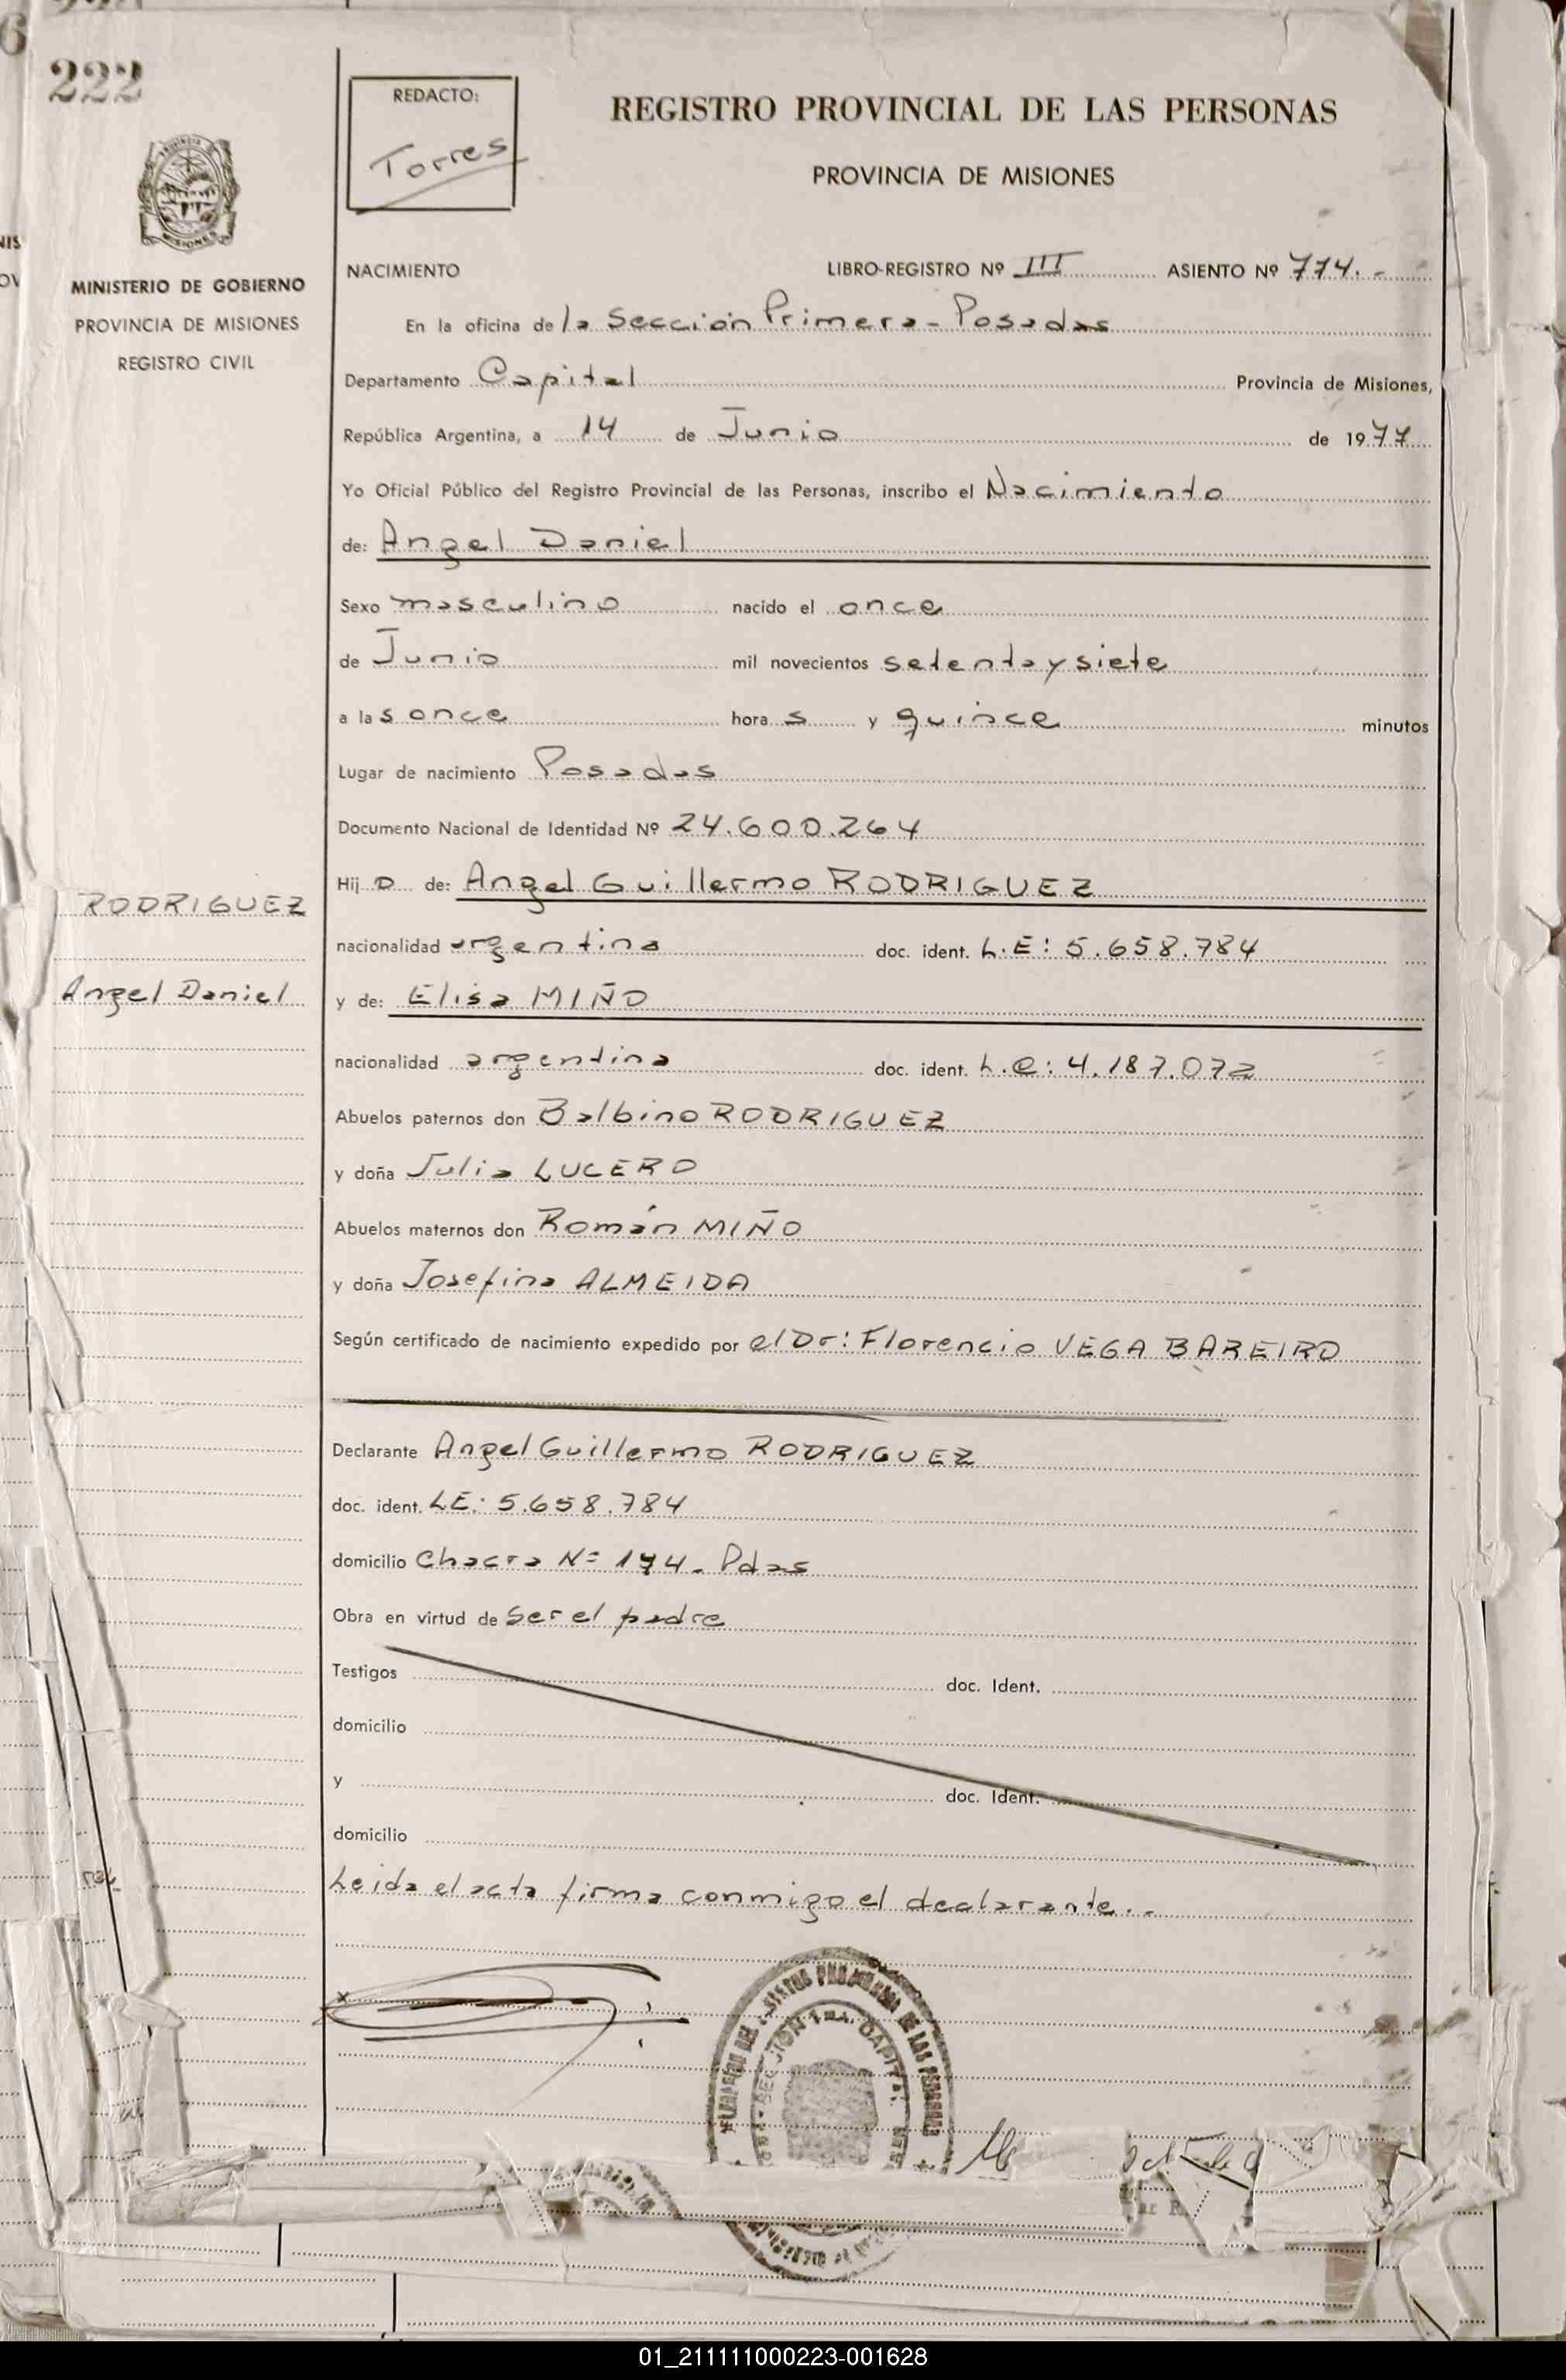 222
REDACTO:
Torres
REGISTRO PROVINCIAL DE LAS PERSONAS
PROVINCIA DE MISIONES
MISIONES
MINISTERIO DE GOBIERNO
PROVINCIA DE MISIONES
REGISTRO CIVIL
NACIMIENTO LIBRO-REGISTRO Nº III ASIENTO Nº 774.-
En la oficina de la Sección Primera - Posadas
Departamento Capital Provincia de Misiones,
República Argentina, a 14 de Junio de 1977
Yo Oficial Público del Registro Provincial de las Personas, inscribo el Nacimiento
de: Angel Daniel
Sexo masculino nacido el once
de Junio mil novecientos setenta y siete
a las once horas y quince minutos
Lugar de nacimiento Posadas
Documento Nacional de Identidad Nº 24.600.264
Hijo de: Angel Guillermo RODRIGUEZ
RODRIGUEZ
nacionalidad argentina doc. ident. L.E: 5.658.784
Angel Daniel
y de: Elisa MIÑO
nacionalidad argentina doc. ident. L.C: 4.187.072
Abuelos paternos don Balbino RODRIGUEZ
y doña Julia LUCERO
Abuelos maternos don Román MIÑO
y doña Josefina ALMEIDA
Según certificado de nacimiento expedido por el Dr: Florencio VEGA BAREIRO
Declarante Angel Guillermo RODRIGUEZ
doc. ident. LE: 5.658.784
domicilio Chacra Nº 174. Pdas
Obra en virtud de ser el padre
Testigos doc. Ident.
domicilio
y doc. Ident.
domicilio
Leida el acta firma conmigo el declarante..
DE LAS PERSONAS
01_211111000223-001628